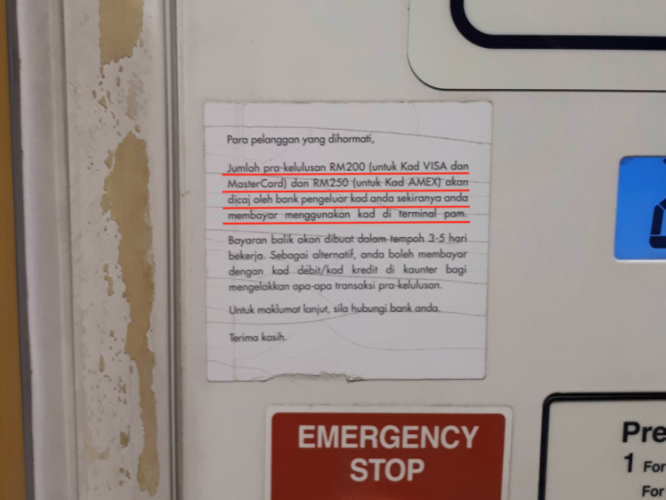 Para pelanggan yang dihormati,
Jumlah pra-kelulusan RM200 (untuk Kad VISA dan
MasterCard) dan RM250 (untuk Kad AMEX) akan
dicaj oleh bank pengeluar kad anda sekiranya anda
membayar menggunakan kad di terminal pam.
Bayaran balik akan dibuat dalam tempoh 3-5 hari
bekerja. Sebagai alternatif, anda boleh membayar
dengan kad debit/kad kredit di kaunter bagi
mengelakkan apa-apa transaksi pra-kelulusan.
Untuk maklumat lanjut, sila hubungi bank anda.
Terima kasih.
EMERGENCY
STOP
Pre
1 For
For